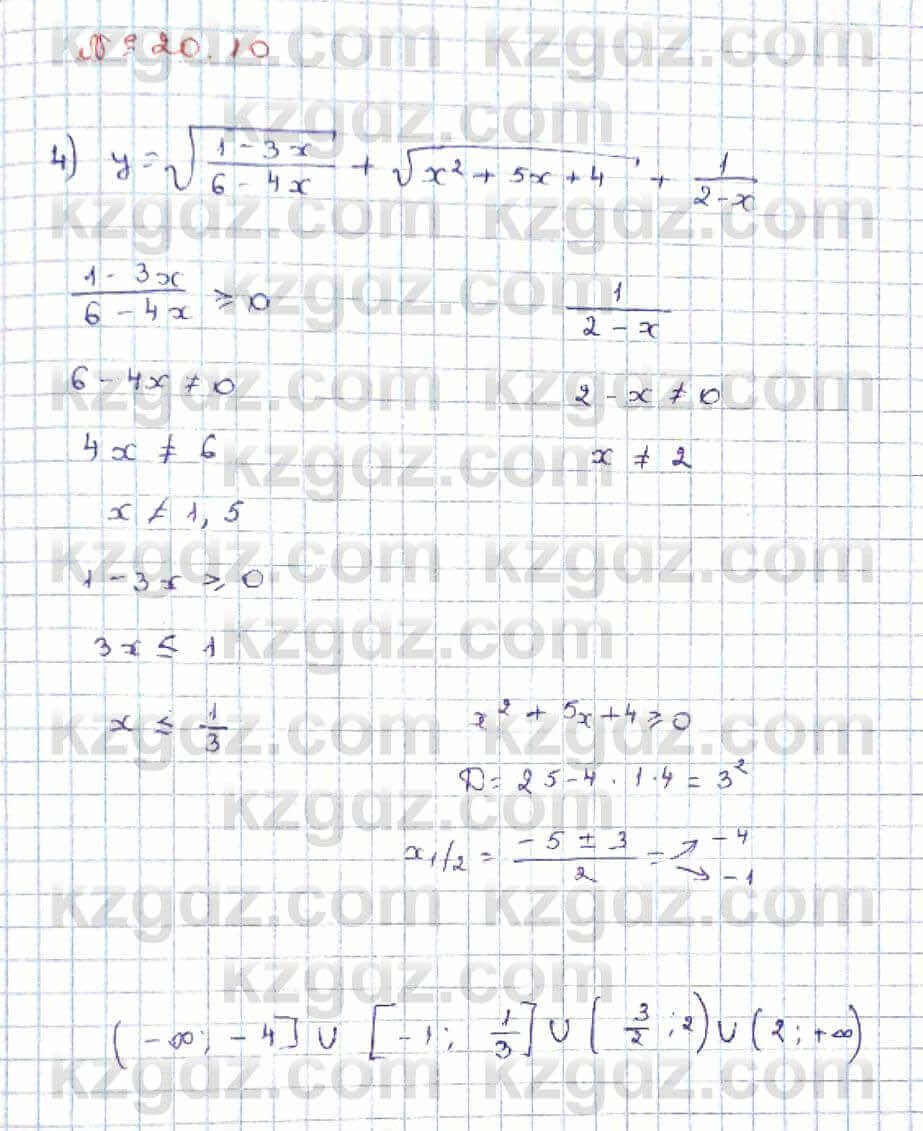 № 20.10
4) y = √((1 - 3x)/(6 - 4x)) + √(x² + 5x + 4) + 1/(2 - x)
(1 - 3x)/(6 - 4x) ≥ 0
6 - 4x ≠ 0
4x ≠ 6
x ≠ 1,5
1 - 3x ≥ 0
3x ≤ 1
x ≤ 1/3
1/(2 - x)
2 - x ≠ 0
x ≠ 2
x² + 5x + 4 ≥ 0
D = 25 - 4 · 1 · 4 = 3²
x₁/₂ = (-5 ± 3)/2 = ↗ -4 ↘ -1
(-∞; -4] ∪ [-1; 1/3] ∪ (3/2; 2) ∪ (2; +∞)
kzgdz.com